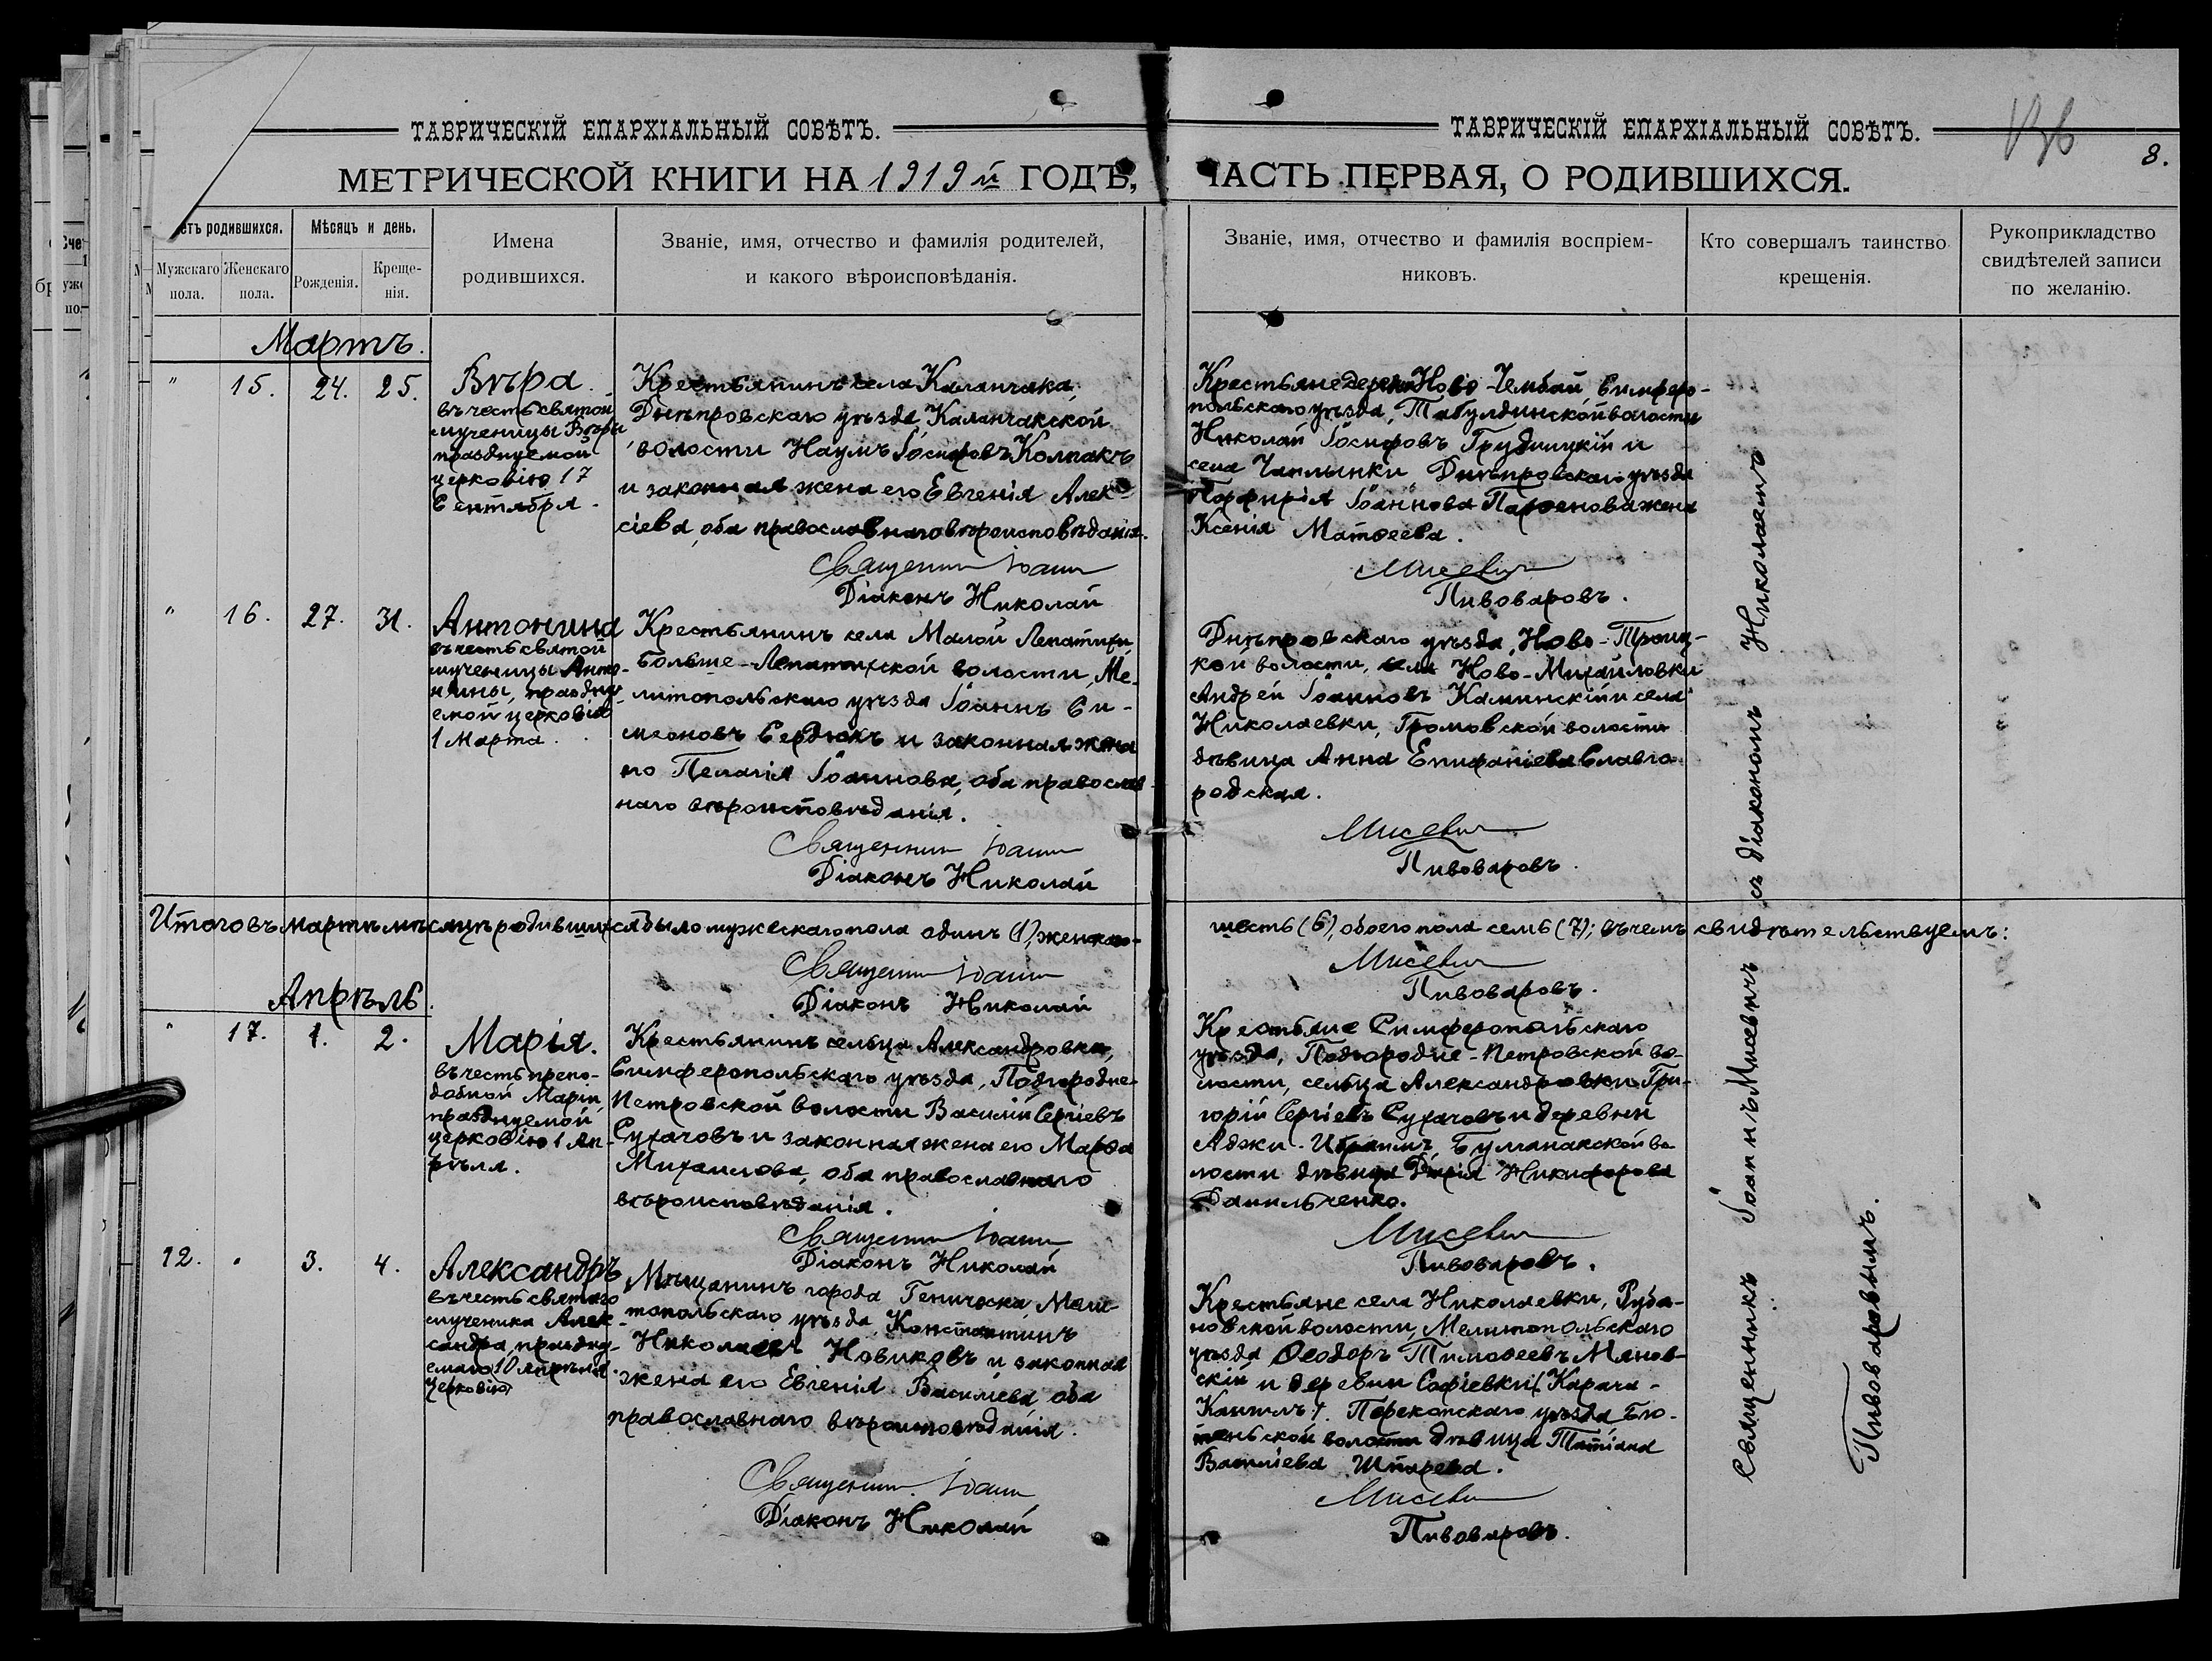 ТАВРИЧЕСКІЙ ЕПАРХІАЛЬНЫЙ СОВѢТЪ.
МЕТРИЧЕСКОЙ КНИГИ НА 1919й ГОДЪ,
етъ родившихся.
Мужскаго пола.
Женскаго пола.
Мѣсяцъ и день.
Рожденія.
Креще-
нія.
Имена
родившихся.
Званіе, имя, отчество и фамилія родителей,
и какого вѣроисповѣданія.
Мартъ.
" 15. 24. 25.
Вѣра.
въ честь святой
мученицы Вѣры
празднуемой
церковію 17
Сентября.
Крестьянинъ села Каланчака,
Днѣпровскаго уѣзда, Каланчакской
волости Наумъ Іосифовъ Колпакъ
и законная жена его Евгенія Алек-
сіева, оба православнаго вѣроисповѣданія.
Священникъ Іоаннъ
Діаконъ Николай
" 16. 27. 31.
Антонина
въ честь святой
мученицы Анто-
нины, праздну-
емой церковію
1 Марта.
Крестьянинъ села Малой Лепатихи,
Больше-Лепатихской волости, Ме-
литопольскаго уѣзда Іоаннъ Си-
меоновъ Сердюкъ и законная жена
его Пелагія Іоаннова, оба православ-
наго вѣроисповѣданія.
Священникъ Іоаннъ
Діаконъ Николай
Итого въ мартѣ мѣсяцѣ родившихся было мужескаго пола одинъ (1), женскаго-
Священникъ Іоаннъ
Діаконъ Николай
Апрѣль.
" 17. 1. 2.
Марія.
въ честь препо-
добной Маріи,
празднуемой
церковію 1 Ап-
рѣля.
Крестьянинъ сельца Александровки,
Симферопольскаго уѣзда, Подгородне-
Петровской волости Василій Сергіевъ
Сухачовъ и законная жена его Марѳа
Михаилова, оба православнаго
вѣроисповѣданія.
Священникъ Іоаннъ
Діаконъ Николай
12. " 3. 4.
Александръ
въ честь святаго
мученика Алек-
сандра, праздну-
емаго 10 Апрѣля
церковію
Мѣщанинъ города Геническа Мели-
топольскаго уѣзда, Константинъ
Николаевъ Новиковъ и законная
жена его Евгенія Василіева, оба
православнаго вѣроисповѣданія.
Священникъ Іоаннъ
Діаконъ Николай
ТАВРИЧЕСКІЙ ЕПАРХІАЛЬНЫЙ СОВѢТЪ.
8.
ЧАСТЬ ПЕРВАЯ, О РОДИВШИХСЯ.
Званіе, имя, отчество и фамилія воспріем-
никовъ.
Кто совершалъ таинство
крещенія.
Рукоприкладство
свидѣтелей записи
по желанію.
Крестьяне деревни Ново-Чембай, Симферо-
польскаго уѣзда, Табулдинской волости
Николай Іосифовъ Грудницкій и
села Чаплынки, Днѣпровскаго уѣзда
Порфирія Іоаннова Парѳенова жена
Ксенія Матѳеева.
Мисевичъ
Пивоваровъ.
Днѣпровскаго уѣзда, Ново-Троиц-
кой волости, села Ново-Михайловки
Андрей Іоанновъ Каминскій и села
Николаевки, Громовской волости
дѣвица Анна Епифаніева Славго-
родская.
Мисевичъ
Пивоваровъ.
шесть (6), обоего пола семь (7); въ чемъ свидѣтельствуемъ:
Мисевичъ
Пивоваровъ.
Крестьяне Симферопольскаго
уѣзда, Подгородне-Петровской во-
лости, сельца Александровки Гри-
горій Сергіевъ Сухачовъ и деревни
Аджи-Ибраимъ, Булганакской во-
лости дѣвица Дарія Никифорова
Данильченко.
Мисевичъ
Пивоваровъ.
Крестьяне села Николаевки, Руба-
новской волости, Мелитопольскаго
уѣзда Ѳеодоръ Тимоѳеевъ Манов-
скій и деревни Софіевки (Карача-
Кангилъ). Перекопскаго уѣзда, Бю-
теньской волости дѣвица Татіана
Василіева Шпарева.
Мисевичъ
Пивоваровъ.
Священникъ Іоаннъ Мисевичъ съ діакономъ Николаемъ
Пивоваровымъ.